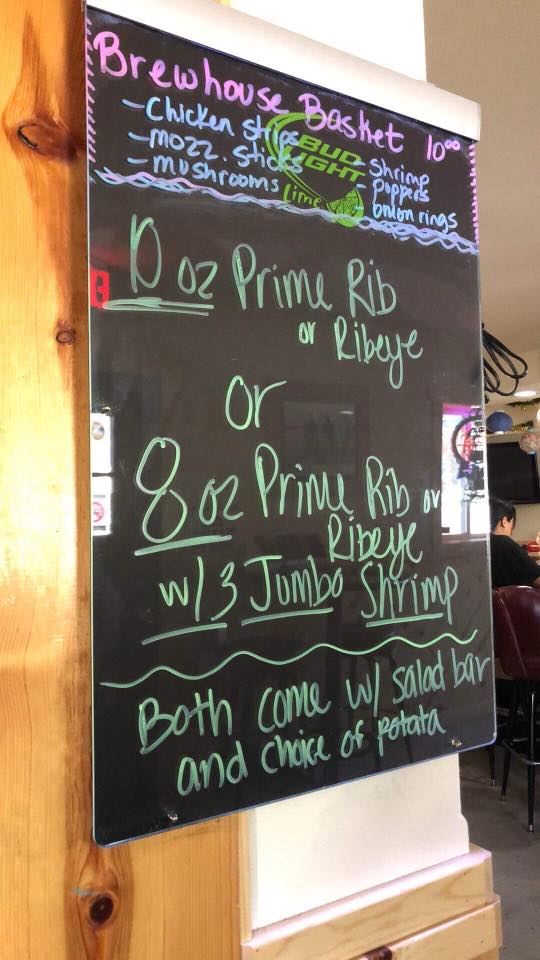 Brewhouse Basket 10⁰⁰
- Chicken strips
- mozz. sticks
- mushrooms
- Shrimp
- Poppers
- onion rings
BUD LIGHT
Lime
10 oz Prime Rib
or Ribeye
or
8 oz Prime Rib or
Ribeye
w/3 Jumbo Shrimp
Both come w/ salad bar
and choice of potata